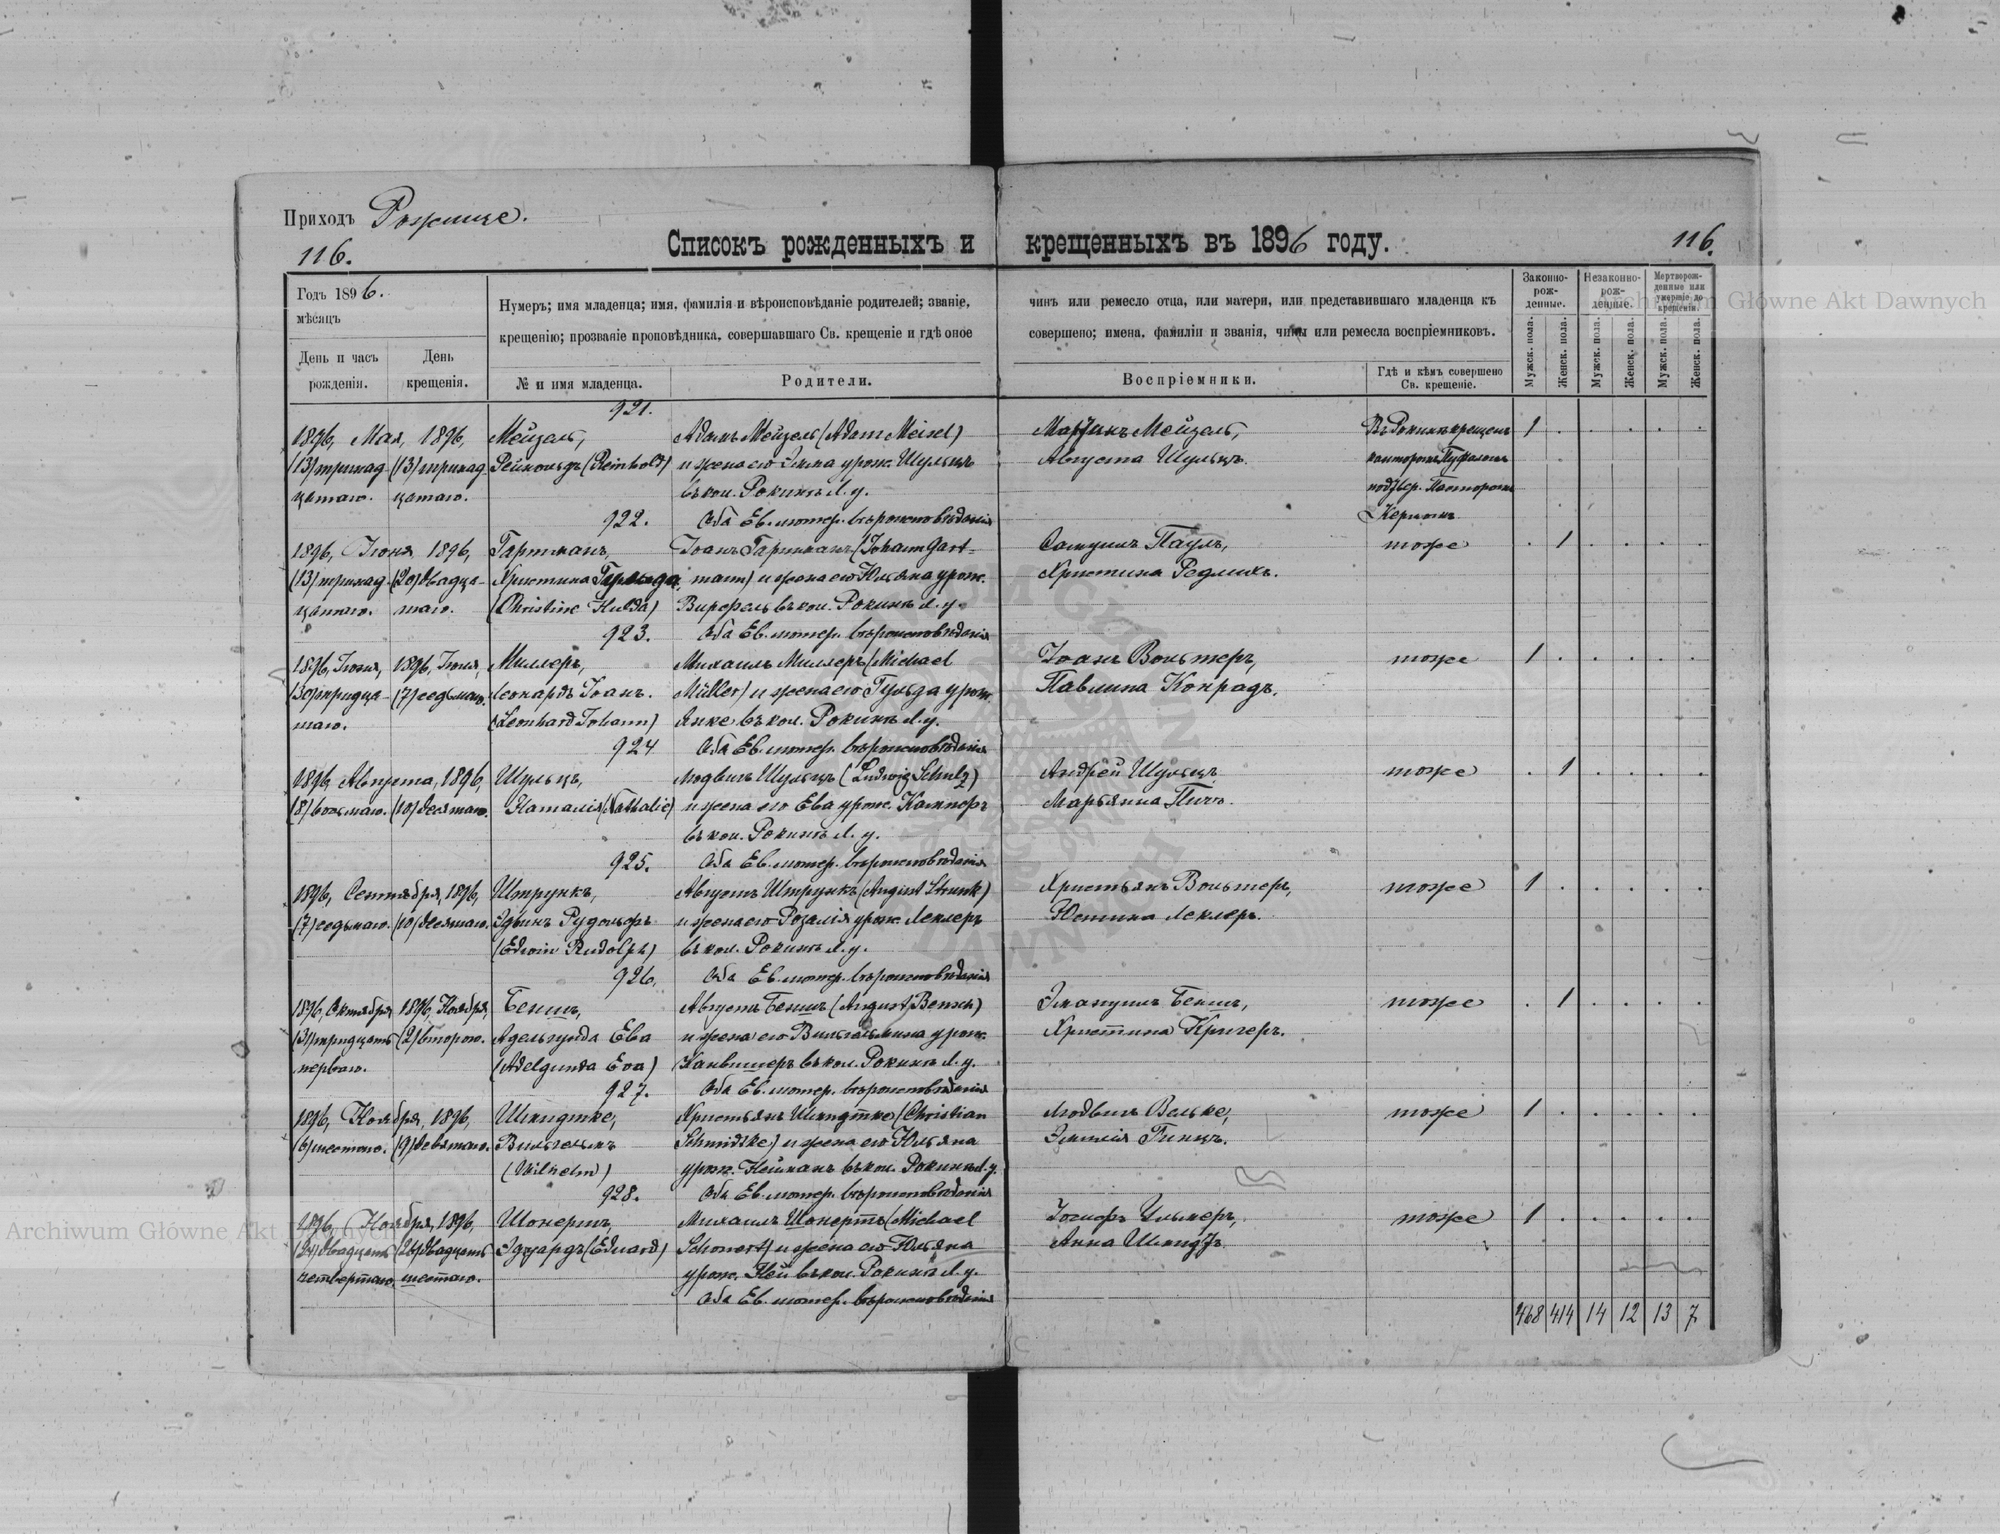 Приходъ Рожище.
116.
Списокъ рожденныхъ и крещенныхъ въ 1896 году.
116.
Годъ 1896.
мѣсяцъ
День и часъ рожденія.
День крещенія.
Нумеръ; имя младенца; имя, фамилія и вѣроисповѣданіе родителей; званіе, чинъ или ремесло отца, или матери, или представившаго младенца къ
крещенію; прозваніе проповѣдника, совершавшаго Св. крещеніе и гдѣ оное совершено; имена, фамиліи и званія, чины или ремесла воспріемниковъ.
№ и имя младенца.
Родители.
Воспріемники.
Гдѣ и кѣмъ совершено Св. крещеніе.
Законно-рож-денные.
Незаконно-рож-денные.
Мертворож-денные или умершіе до крещенія.
Мужск. пола.
Женск. пола.
Мужск. пола.
Женск. пола.
Мужск. пола.
Женск. пола.
921.
1896, Мая, 1896, Мейзель, Адамъ Мейзель (Adam Meisel) Мартинъ Мейзель, Въ Рокинѣ крещенъ 1
(13) тринад- (13) тринад- Рейнольдъ (Reinhold) и жена его Эмма урож. Шульцъ Августа Шульцъ. канторомъ
цатаго. цатаго. въ кол. Рокинѣ Л. у. подтвер. Пасторомъ
922. Оба Ев. лютер. вѣроисповѣданія Керномъ
1896, Іюня, 1896, Гартманъ, Іоанъ Гартманъ (Johann Gart- Самуилъ Паулъ, тоже 1
(13) тринад- (20) двадца- Христина Гульда. mann) и жена его Юльяна урож. Христина Редлихъ.
цатаго. таго. (Christine Hulda) въ кол. Рокинѣ Л. у.
923. Оба Ев. лютер. вѣроисповѣданія
1896, Іюня, 1896, Іюля, Миллеръ, Михаилъ Миллеръ (Michael Іоанъ Вольтеръ, тоже 1
(30) тридца- (7) седьмаго. Леонардъ Іоанъ. Müller) и жена его Гульда урож. Павлина Конрадъ.
таго. (Leonhard Johann) Янке въ кол. Рокинѣ Л. у.
924 Оба Ев. лютер. вѣроисповѣданія
1896, Августа, 1896, Шульцъ, Людвигъ Шульцъ (Ludwig Schulz) Андрей Шульцъ тоже 1
(8) восьмаго. (10) десятаго. Наталія (Nathalie) и жена его Ева урож. Марьянна
въ кол. Рокинѣ Л. у.
925. Оба Ев. лютер. вѣроисповѣданія
1896, Сентября, 1896, Штрункъ, Августъ Штрункъ (August Strunk) Христьянъ Вольтеръ, тоже 1
(7) седьмаго. (10) десятаго. Эдвинъ Рудольфъ и жена его Розалія урож. Леклеръ Юстина Леклеръ.
(Edwin Rudolph) въ кол. Рокинѣ Л. у.
926. Оба Ев. лютер. вѣроисповѣданія
1896, Октября, 1896, Ноября, Беншъ, Августъ Беншъ (August Bensch) Эмануилъ Беншъ, тоже 1
(31) тридцать (2) второго. Адельгунда Ева и жена его Вильгельмина урож. Христина Кригеръ.
перваго. (Adelgunda Eva) въ кол. Рокинѣ Л. у.
927. Оба Ев. лютер. вѣроисповѣданія
1896, Ноября, 1896, Шмидтке, Христьянъ Шмидтке (Christian Людвигъ Вельке, тоже 1
(6) шестаго. (9) девятаго. Вильгельмъ Schmidtke) и жена его Юльяна Эмилія Гинцъ.
(Wilhelm) урож. Нейманъ въ кол. Рокинѣ Л. у.
928. Оба Ев. лютер. вѣроисповѣданія
1896, Ноября, 1896, Шонертъ, Михаилъ Шонертъ (Michael Іосифъ Ульмеръ, тоже 1
(24) двадцать (26) двадцать Эдуардъ (Eduard) Schonert) и жена его Юльяна Анна Шмидтъ.
четвертаго. шестаго. урож. Ней въ кол. Рокинѣ Л. у.
Оба Ев. лютер. вѣроисповѣданія
468 414 14 12 13 7
Archiwum Główne Akt Dawnych
Archiwum Główne Akt Dawnych